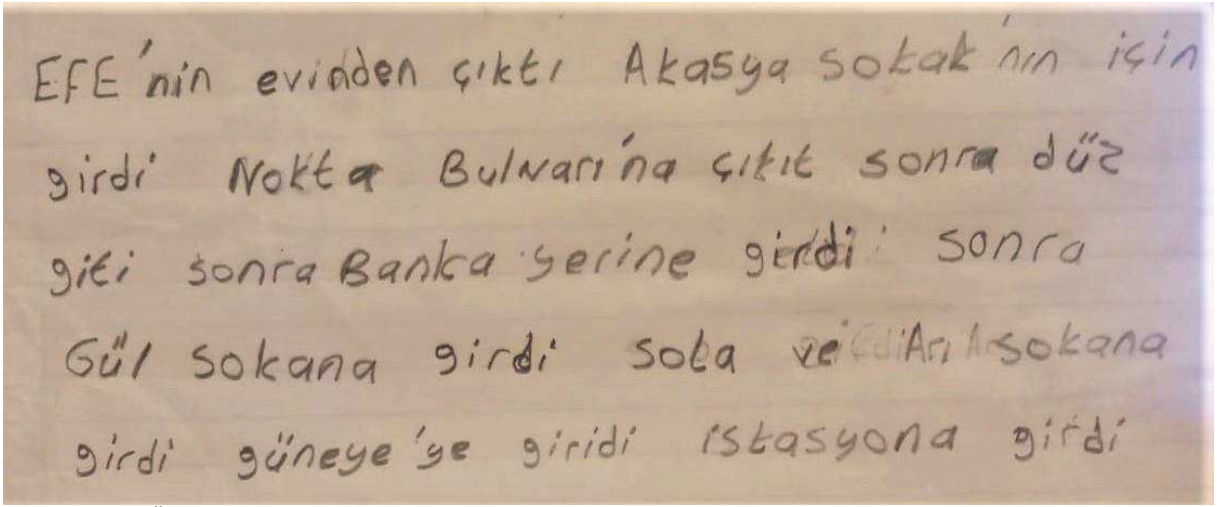 EFE'nin evinden çıktı Akasya sokak'nın için
girdi Nokta Bulvarı'na çıkıt sonra düz
giti sonra Banka yerine girdi sonra
Gül sokana girdi sola ve Arı sokana
girdi güneye'ye giridi istasyona girdi